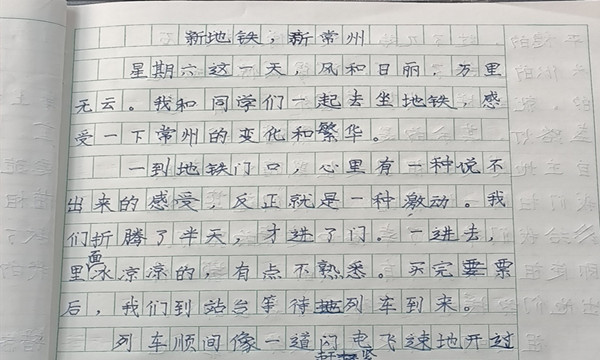 新地铁，新常州
星期六这一天，风和日丽，万里
无云。我和同学们一起去坐地铁，感
受一下常州的变化和繁华。
一到地铁门口，心里有一种说不
出来的感受，反正就是一种激动。我
们折腾了半天，才进了门。一进去，
里面冰凉凉的，有点不熟悉。买完票
后，我们到站台等待列车到来。
列车顺间像一道闪电飞速地开过